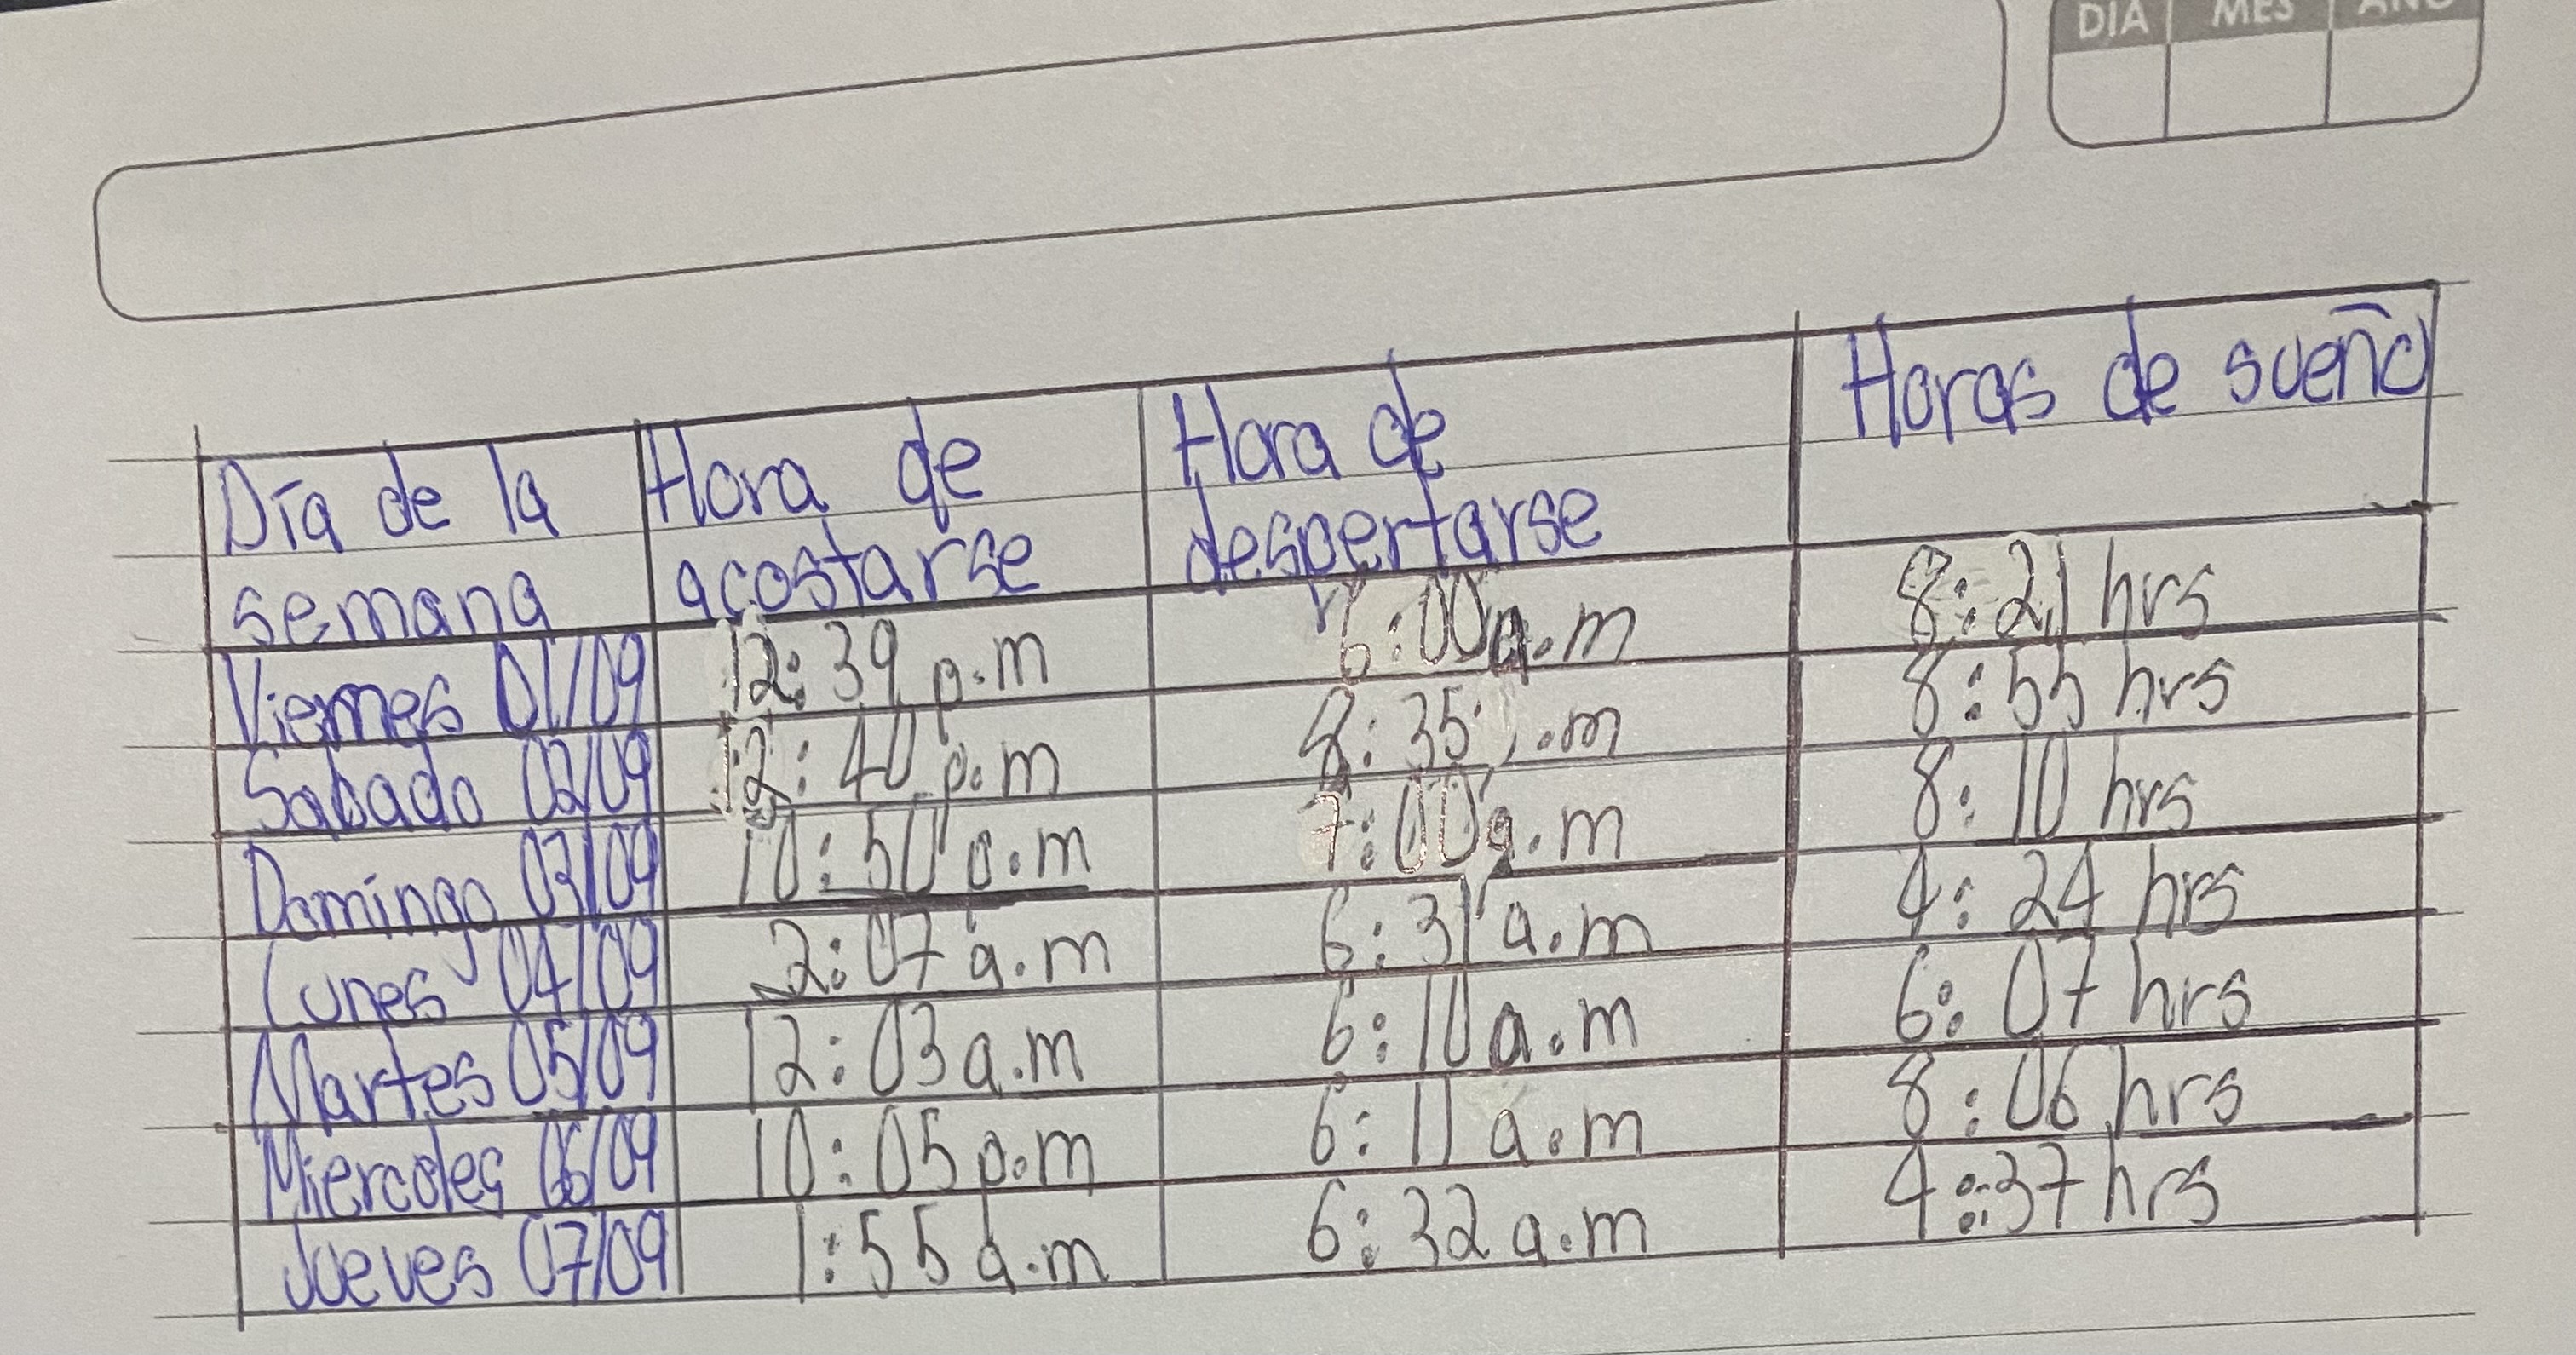 DIA MES AÑO
Día de la semana Hora de acostarse Hora de despertarse Horas de sueño
Viernes 01/09 12:39 p.m 6:00 a.m 8:21 hrs
Sabado 02/09 12:40 p.m 8:35 .m 8:55 hrs
Domingo 03/09 10:50 p.m 7:00 a.m 8:10 hrs
Lunes 04/09 2:07 a.m 6:31 a.m 4:24 hrs
Martes 05/09 12:03 a.m 6:10 a.m 6:07 hrs
Miercoles 06/09 10:05 p.m 6:11 a.m 8:06 hrs
Jueves 07/09 1:55 a.m 6:32 a.m 4:37 hrs